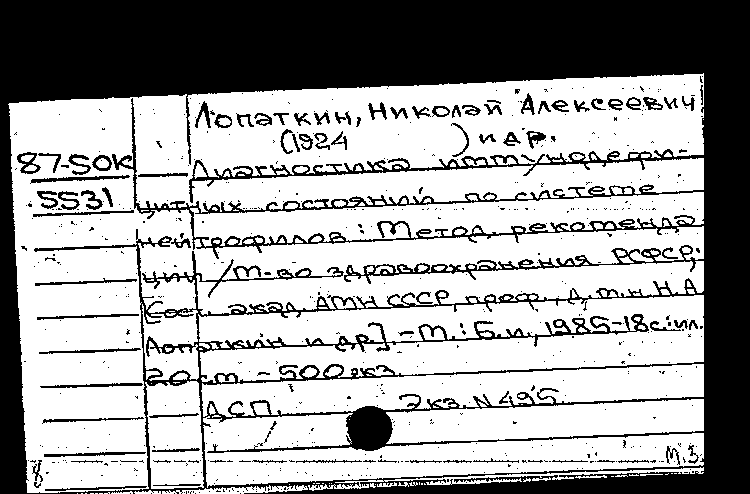 Лопаткин, Николай Алексеевич
(1924        ) и др.
87-SOK Диагностика иммунодефи-
5531 цитных состояний по системе
нейтрофилов: Метод. рекоменда
ции / М-во здравоохранения РСФСР;
Сост. акад. АМН СССР, проф., д.м.н. Н.А.
Лопаткин и др.]. – М.: Б.и., 1985-18с.: ил.
20 см. – 500 экз.
ДСП.        Экз. N 495
8        М.З.